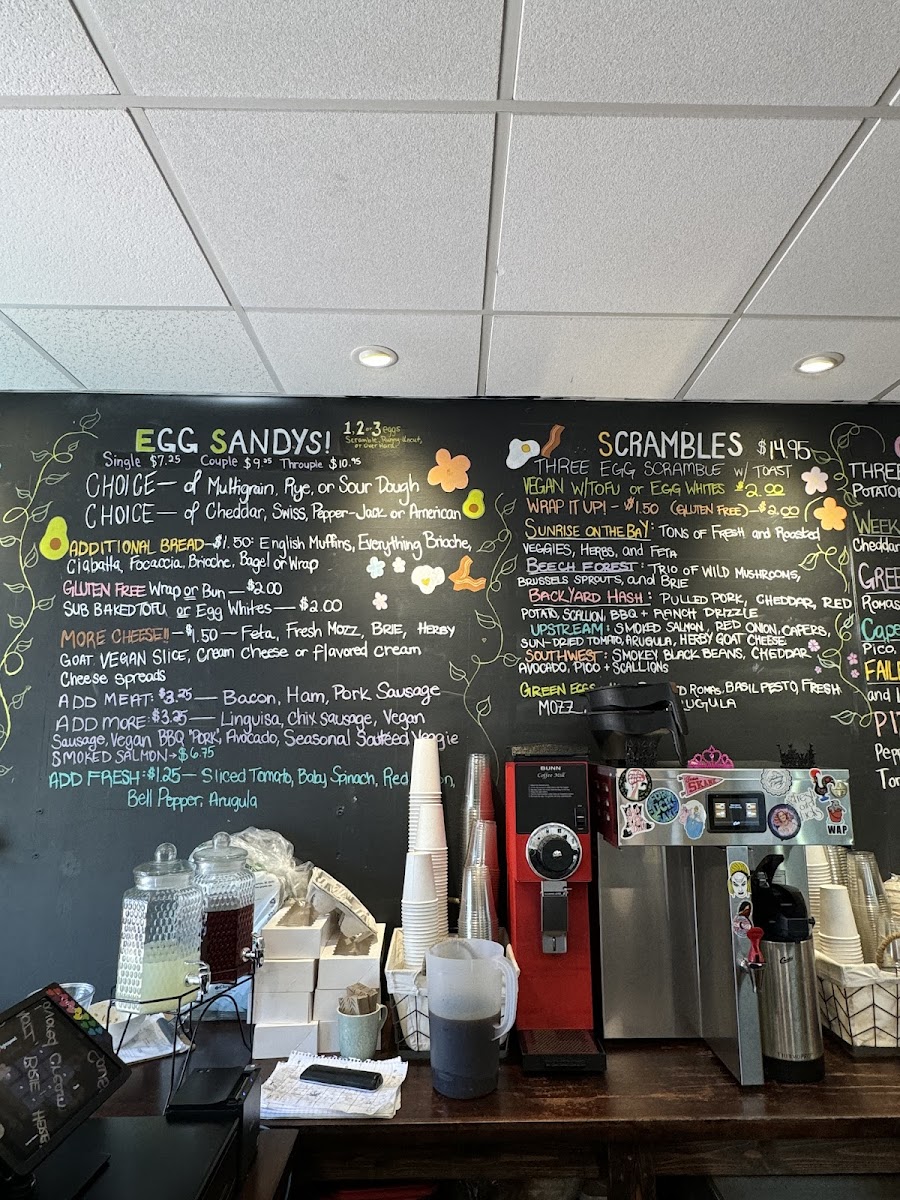 EGG SANDYS!
1, 2 or 3 eggs
Scramble, Runny-Uncut,
or Over Hard.
Single $7.25 Couple $9.25 Throuple $10.95
CHOICE— of Multigrain, Rye, or Sour Dough
CHOICE— of Cheddar, Swiss, Pepper-Jack or American
ADDITIONAL BREAD—$1.50: English Muffins, Everything Brioche,
Ciabatta, Focaccia, Brioche, Bagel or Wrap
GLUTEN FREE Wrap or Bun — $2.00
SUB BAKED TOFU or Egg Whites — $2.00
MORE CHEESE!! —$1.50 — Feta, Fresh Mozz, BRIE, HERBY
GOAT. VEGAN SLICE, Cream Cheese or flavored cream
Cheese spreads
ADD MEAT: $3.75 — Bacon, Ham, Pork Sausage
ADD MORE: $3.25 — Linguisa, Chix Sausage, Vegan
Sausage, Vegan BBQ "Pork", Avocado, Seasonal Sauteed Veggie
SMOKED SALMON → $6.75
ADD FRESH: $1.25 — Sliced Tomato, Baby Spinach, Red
Bell Pepper, Arugula
SCRAMBLES $14.95
THREE EGG SCRAMBLE W/ TOAST
VEGAN W/TOFU or EGG WHITES $2.00
WRAP IT UP! - $1.50 (GLUTEN FREE)—$2.00
SUNRISE ON THE BAY: TONS OF FRESH and ROASTED
VEGGIES, HERBS, and FETA
BEECH FOREST: TRIO OF WILD MUSHROOMS,
BRUSSELS SPROUTS, and BRIE
BACKYARD HASH: PULLED PORK, CHEDDAR, RED
POTATO, SCALLION, BBQ + RANCH DRIZZLE
UPSTREAM: SMOKED SALMON, RED ONION, CAPERS,
SUN-DRIED TOMATO, ARUGULA, HERBY GOAT CHEESE
SOUTHWEST: SMOKEY BLACK BEANS, CHEDDAR
AVOCADO, PICO + SCALLIONS
GREEN EGGS ROMAS, BASIL PESTO, FRESH
MOZZ
THREE
POTATO
WEEK
Cheddar
Romas
Cape
Pico,
FAILE
and
BUNN
Coffee Mill
WAP